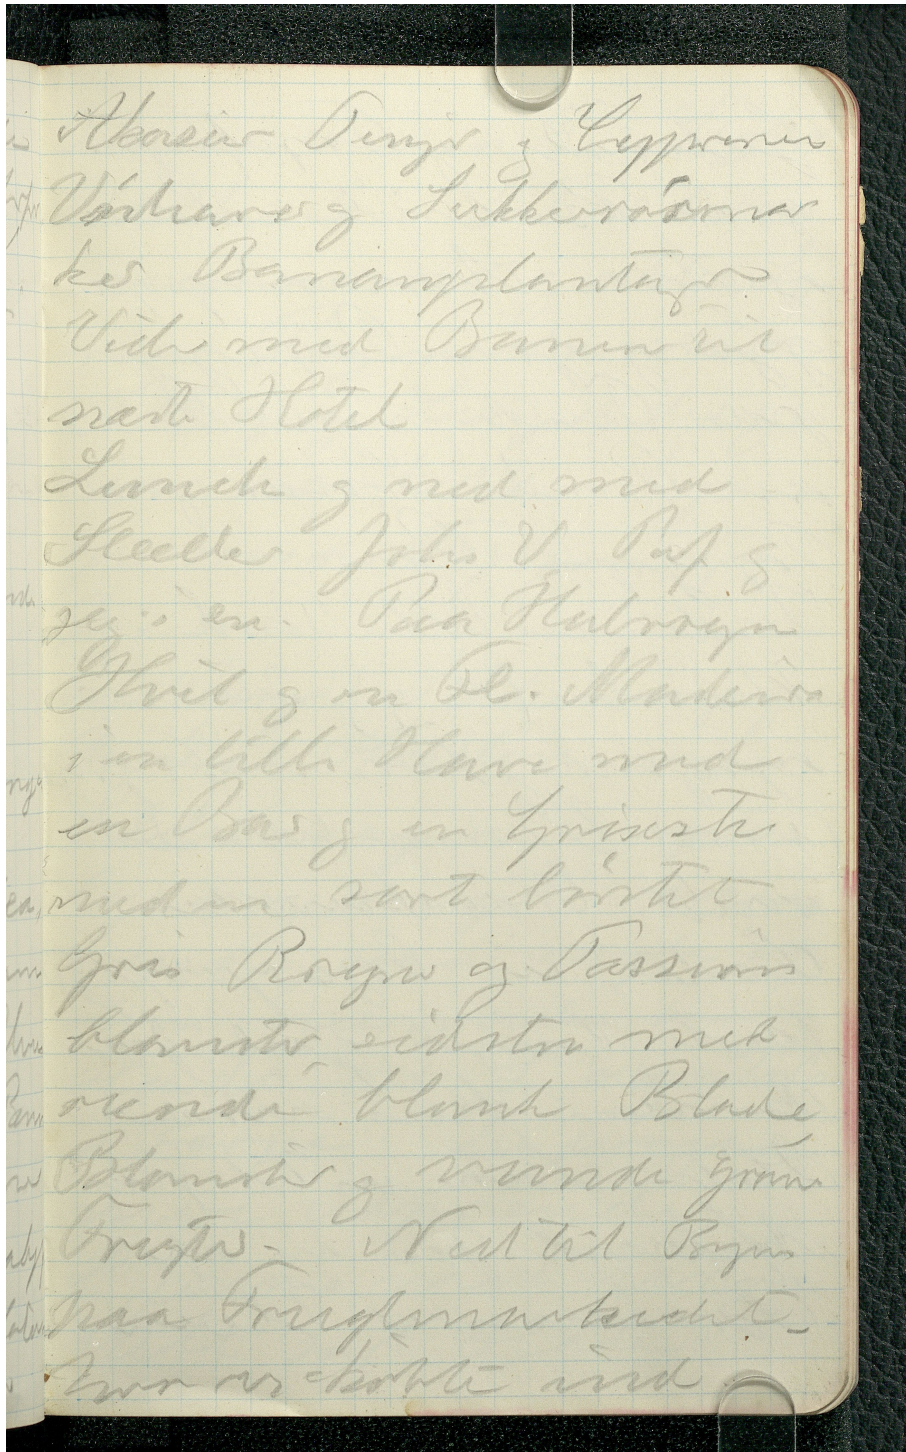 Akasier Pinjer og Cypresser
Vinhaver og Sukkerrörmar
ker Bananplantager
Videre med Banen til
næste Hotel
Lunch og ned med
Slæder John V. Paf og
jeg i en. Paa Halvvejen
Hvil og en Fl. Madeira
i en lille Have med
en Bar og en Grisesti
med en sort börstet
Gris Roser og Passions
blomster, sidstn med
runde blank Blade,
Blomster og runde grönne
Frugter. Ned til Byen
paa Frugtmarkedet
hvor vi köbte ind